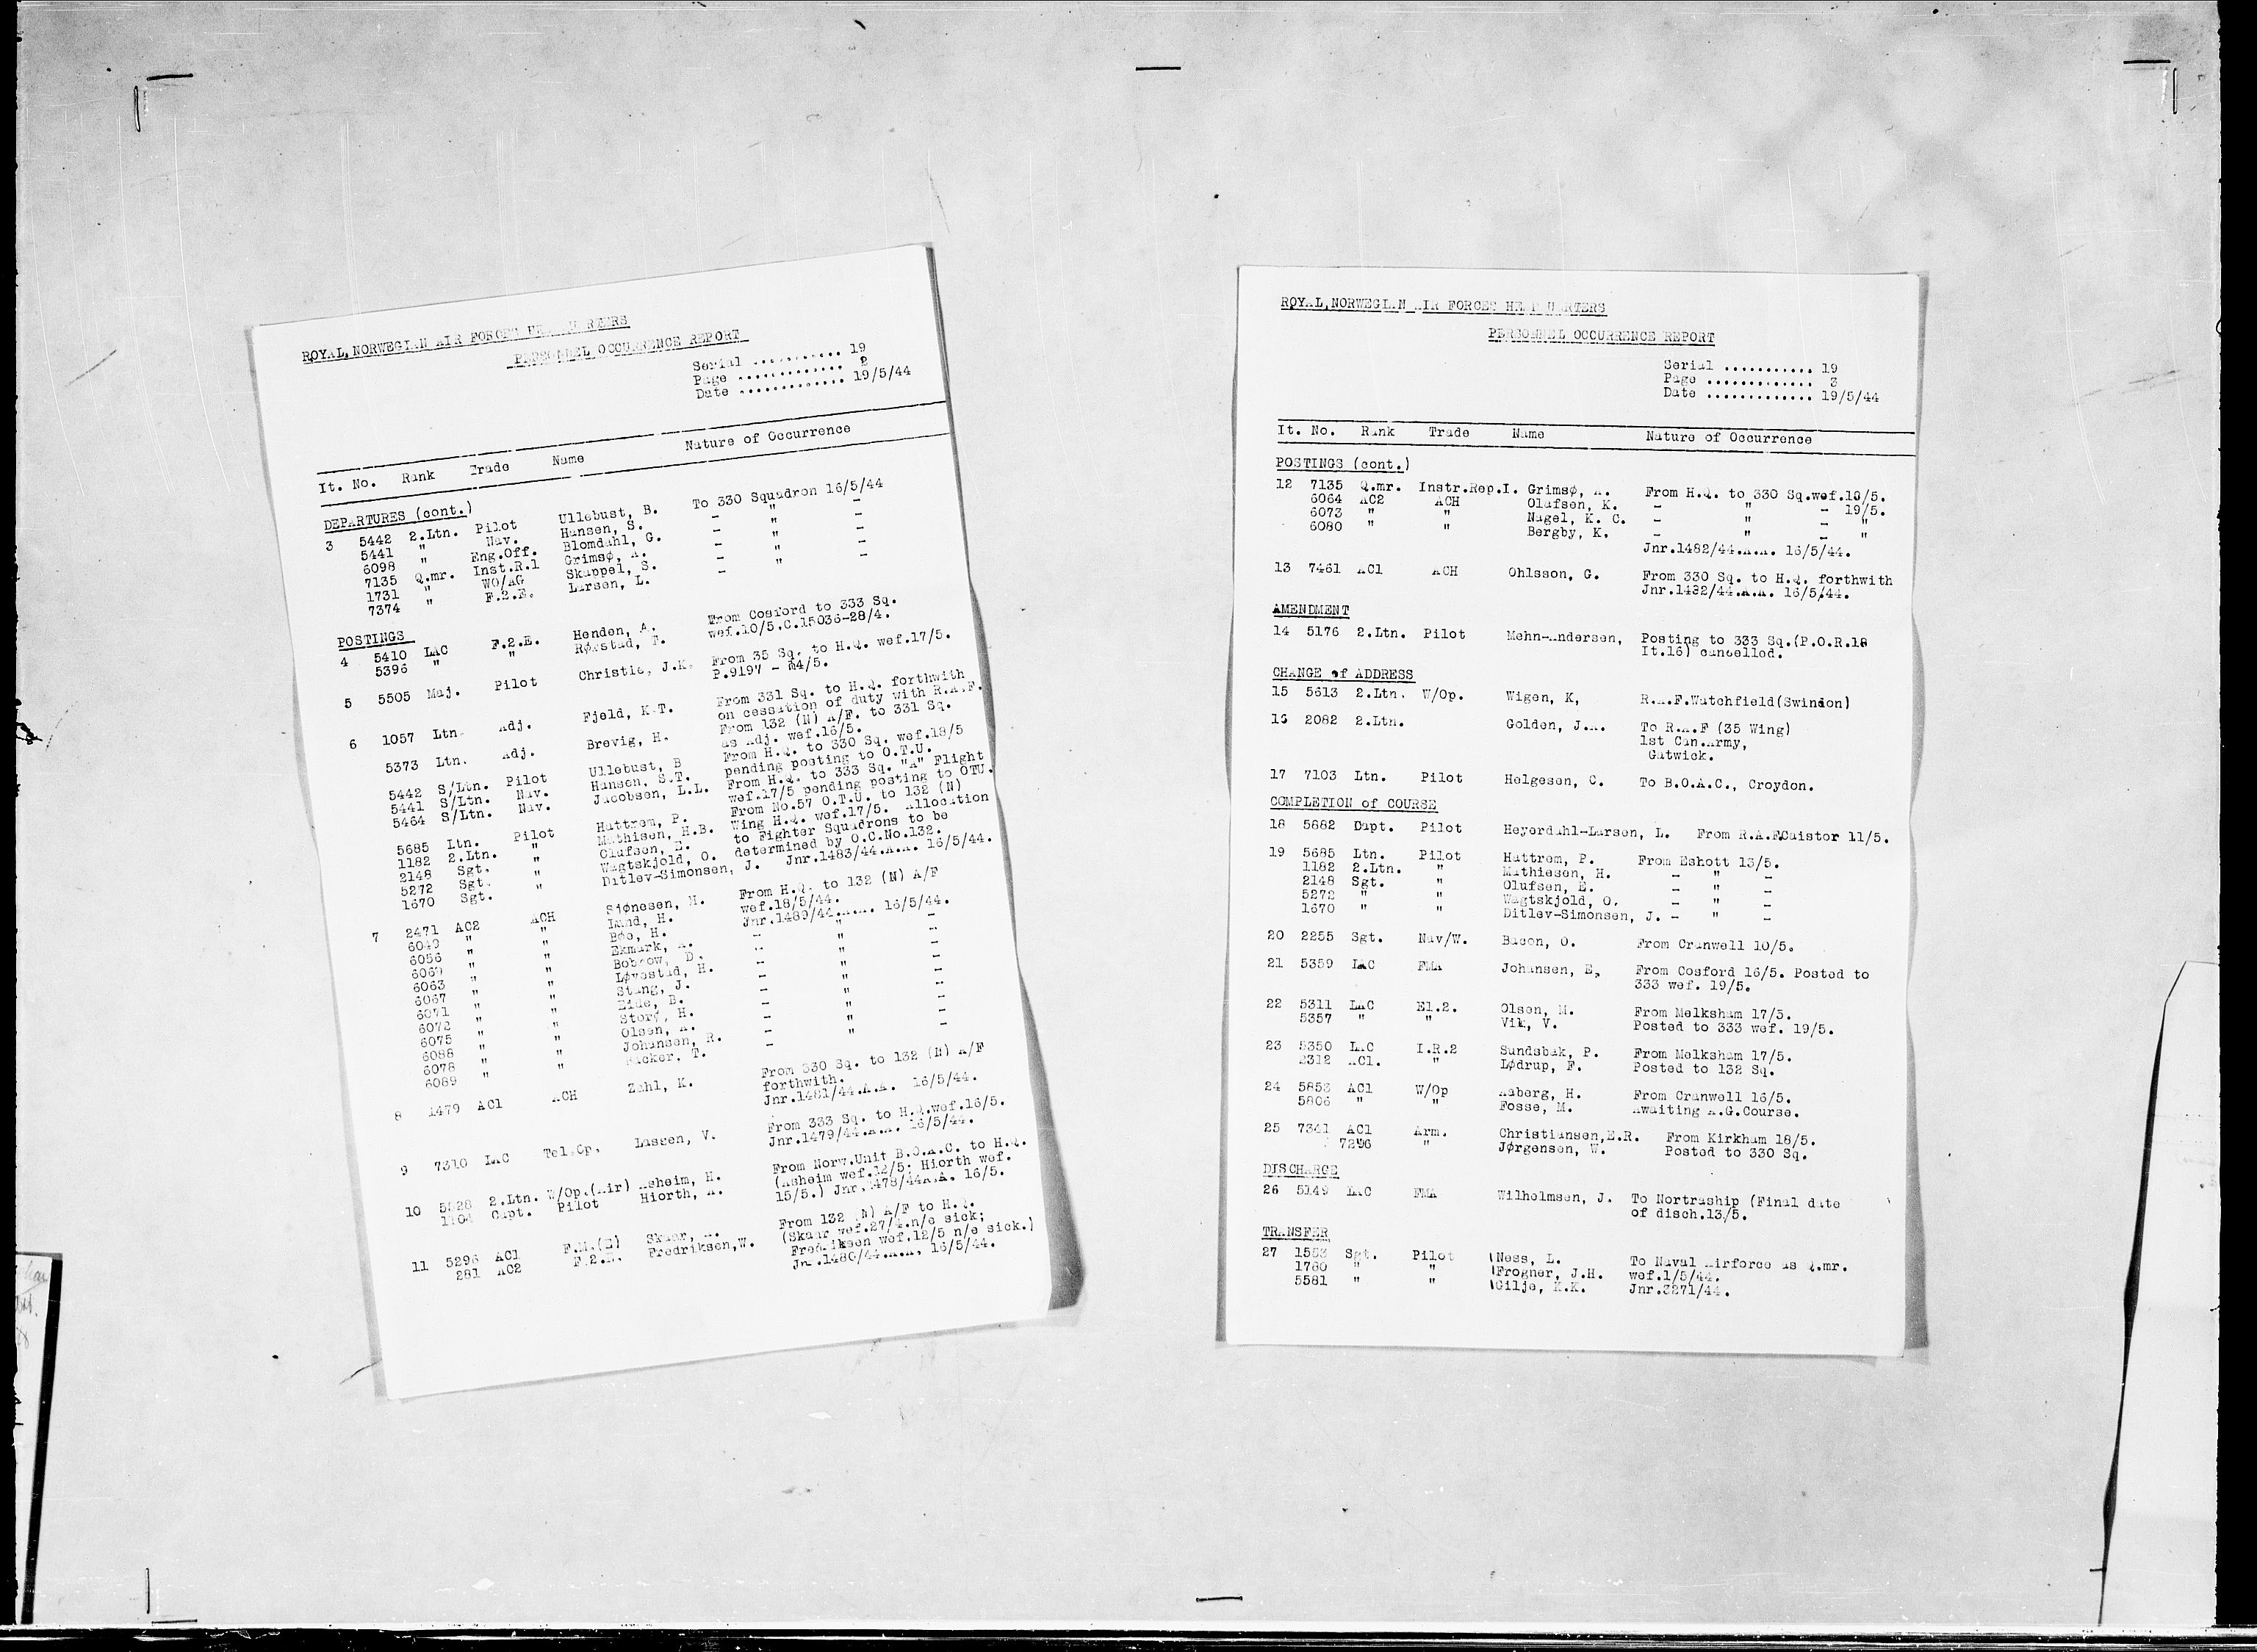 ROYAL NORWEGIAN AIR FORCES HEADQUARTERS
PERSONNEL OCCURRENCE REPORT
Serial ........... 19
Page ............. 2
Date ............. 19/5/44
It. No. Rank Trade Name Nature of Occurrence
DEPARTURES (cont.)
3 5442 2.Ltn. Pilot Ullebust, B. To 330 Squadron 16/5/44
5441 " Nav. Hansen, S. - " -
6098 " Eng.Off. Blomdahl, G. - " -
7135 Q.mr. Inst.R.1 Grimsø, A. - " -
1731 " WO/AG Skappel, S. - " -
7374 " F.2.E. Larsen, L. - " -
POSTINGS
4 5410 LAC F.2.E. Henden, A. From Cosford to 333 Sq.
5396 " " Rørstad, F. wef.10/5.C.15036-28/4.
5 5505 Maj. Pilot Christie, J.K. From 35 Sq. to H.Q. wef.17/5.
P.9197 - 14/5.
6 1057 Ltn. Adj. Fjeld, K.T. From 331 Sq. to H.Q. forthwith
on cessation of duty with R.A.F.
5373 Ltn. Adj. Brevig, H. From 132 (N) A/F. to 331 Sq.
as Adj. wef.16/5.
5442 S/Ltn. Pilot Ullebust, B From H.Q. to 330 Sq. wef.18/5
5441 S/Ltn. Nav. Hansen, S.T. pending posting to O.T.U.
5464 S/Ltn. Nav. Jacobsen, L.L. From H.Q. to 333 Sq. "A" Flight
wef.17/5 pending posting to OTU.
5685 Ltn. Pilot Hattrem, P. From No.57 O.T.U. to 132 (N)
1182 2.Ltn. " Mathisen, H.B. Wing H.Q. wef.17/5. Allocation
2148 Sgt. " Olufsen, E. to Fighter Squadrons to be
5272 Sgt. " Wagtskjold, O. determined by O.C.No.132.
1670 Sgt. " Ditlev-Simonsen, J. Jnr.1483/44.A.A. 16/5/44.
7 2471 AC2 ACH Sjønesen, M. From H.Q. to 132 (N) A/F
6049 " " Lund, H. wef.18/5/44.
6056 " " Bøe, H. Jnr.1489/44.A.A. 16/5/44.
6069 " " Ekmark, A. - " -
6063 " " Bobrow, D. - " -
6067 " " Løvestad, H. - " -
6071 " " Stang, J. - " -
6072 " " Eide, B. - " -
6075 " " Storø, H. - " -
6088 " " Olsen, A. - " -
6078 " " Johansen, R. - " -
6089 " " Backer, T. - " -
8 1479 AC1 ACH Zahl, K. From 330 Sq. to 132 (N) A/F
forthwith.
Jnr.1481/44.A.A. 16/5/44.
9 7310 LAC Tel.Op. Lassen, V. From 333 Sq. to H.Q.wef.16/5.
Jnr.1479/44.A.A. 16/5/44.
10 5528 2.Ltn. W/Op.(Air) Asheim, H. From Norw.Unit B.O.A.C. to H.Q.
1104 Capt. Pilot Hiorth, A. (Asheim wef.12/5; Hiorth wef.
15/5.) Jnr.1478/44A.A. 16/5.
11 5296 AC1 F.M.(E) Skaar, From 132 (N) A/F to H.Q.
281 AC2 F.2.E. Fredriksen,W. (Skaar wef.27/4.n/e sick;
Fredriksen wef.12/5 n/e sick.)
Jnr.1480/44.A.A. 16/5/44.
ROYAL NORWEGIAN AIR FORCES HEADQUARTERS
PERSONNEL OCCURRENCE REPORT
Serial ........... 19
Page ............. 3
Date ............. 19/5/44
It. No. Rank Trade Name Nature of Occurrence
POSTINGS (cont.)
12 7135 Q.mr. Instr.Rep.I. Grimsø, A. From H.Q. to 330 Sq.wef.18/5.
6064 AC2 ACH Olafsen, K. - " - 19/5.
6073 " " Nagel, K. C. - " - "
6080 " " Bergby, K. - " - "
Jnr.1482/44.A.A. 16/5/44.
13 7461 AC1 ACH Ohlsson, G. From 330 Sq. to H.Q. forthwith
Jnr.1482/44.A.A. 16/5/44.
AMENDMENT
14 5176 2.Ltn. Pilot Mehn-Andersen, Posting to 333 Sq.(P.O.R.18
It.16) cancelled.
CHANGE of ADDRESS
15 5613 2.Ltn. W/Op. Wigen, K, R.A.F.Watchfield(Swindon)
16 2082 2.Ltn. Golden, J.A. To R.A.F (35 Wing)
1st Can.Army,
Gatwick.
17 7103 Ltn. Pilot Helgesen, C. To B.O.A.C., Croydon.
COMPLETION of COURSE
18 5682 Capt. Pilot Heyerdahl-Larsen, L. From R.A.F.Caistor 11/5.
19 5685 Ltn. Pilot Hattrem, P. From Eshott 13/5.
1182 2.Ltn. " Mathiesen, H. - " -
2148 Sgt. " Olufsen, E. - " -
5272 " " Wagtskjold, O. - " -
1670 " " Ditlev-Simonsen, J. - " -
20 2255 Sgt. Nav/W. Bacon, O. From Cranwell 10/5.
21 5359 LAC FMA Johansen, E, From Cosford 16/5. Posted to
333 wef. 19/5.
22 5311 LAC El.2. Olsen, M. From Melksham 17/5.
5357 " " Vik, V. Posted to 333 wef. 19/5.
23 5350 LAC I.R.2 Sundsbak, P. From Melksham 17/5.
2312 AC1. " Lødrup, F. Posted to 132 Sq.
24 5853 AC1 W/Op Aaberg, H. From Cranwell 16/5.
5806 " " Fosse, M. Awaiting A.G.Course.
25 7341 AC1 Arm. Christiansen,E.R. From Kirkham 18/5.
7296 " Jørgensen, W. Posted to 330 Sq.
DISCHARGE
26 5149 LAC FMA Wilhelmsen, J. To Nortraship (Final date
of disch.13/5.
TRANSFER
27 1553 Sgt. Pilot Ness, L. To Naval Airforce as Q.mr.
1760 " " Frogner, J.H. wef.1/5/44.
5581 " " Gilje, K.K. Jnr.3271/44.